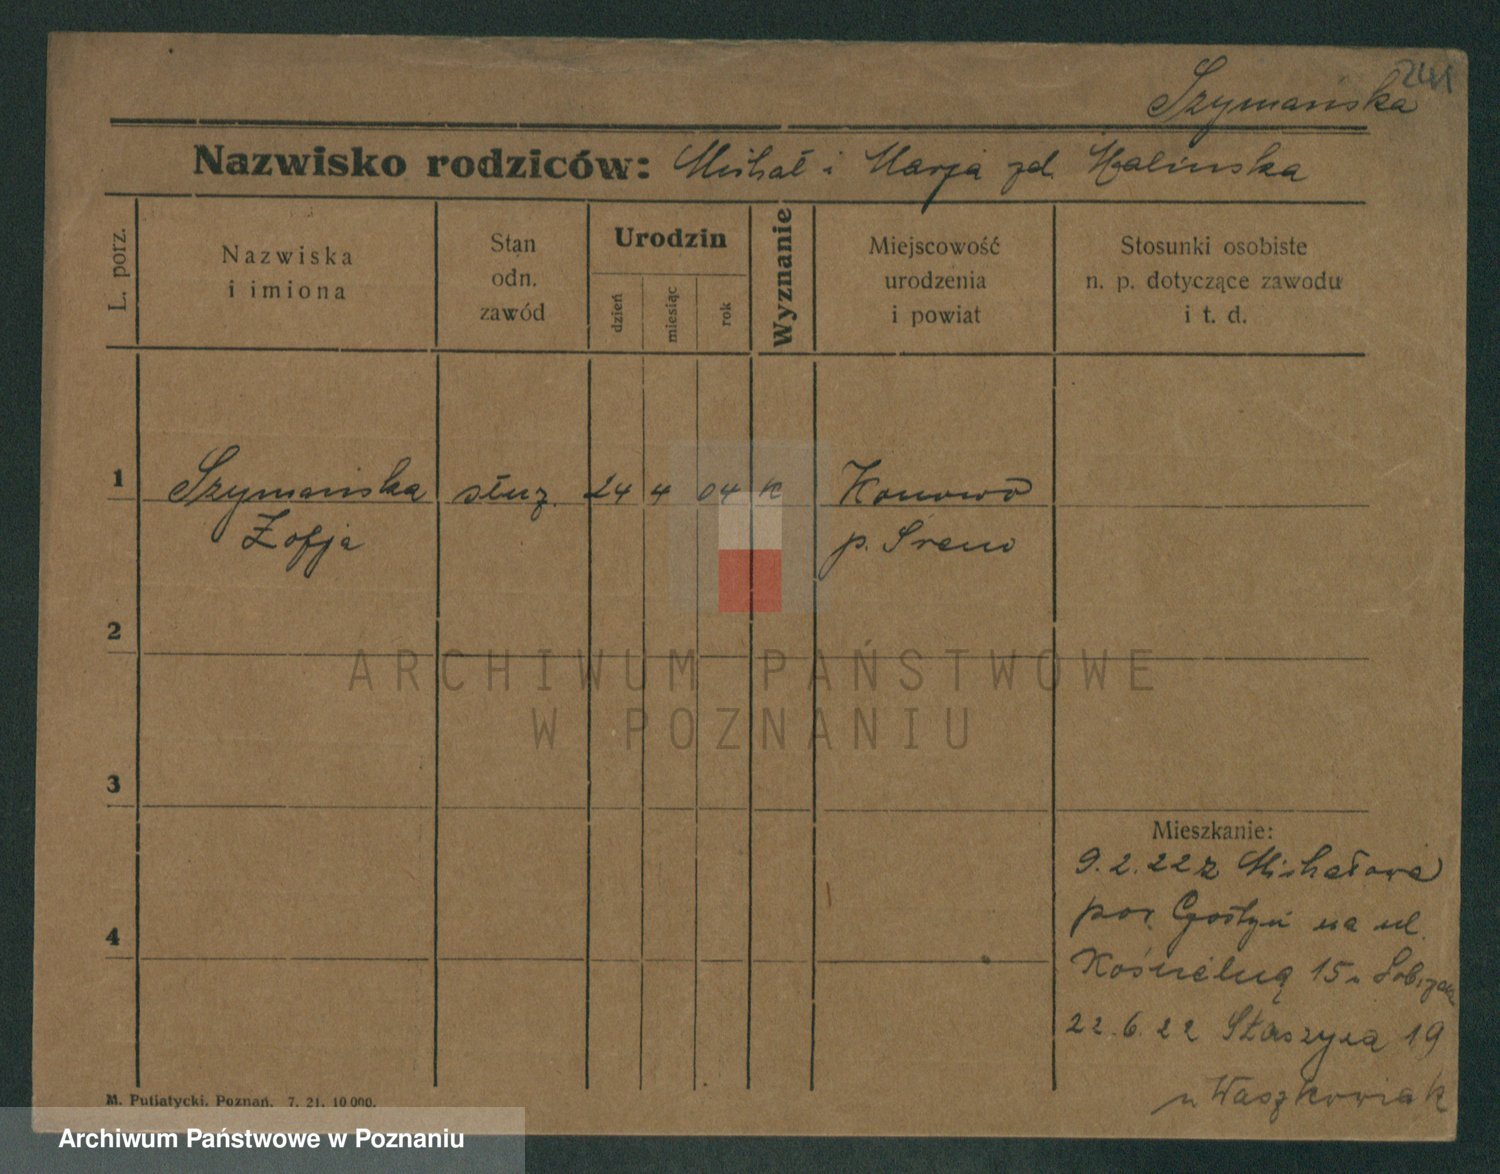 Szymańska
Nazwisko rodziców: Michał i Marja zd. Malinska
L. porz.
Nazwiska
i imiona
Stan
odn.
zawód
Urodzin
dzień
miesiąc
rok
Wyznanie
Miejscowość
urodzenia
i powiat
Stosunki osobiste
n. p. dotyczące zawodu
i t. d.
1
Szymańska służ. 24 4 04 K Konowo
Zofja p. Śrem
2
ARCHIWUM PAŃSTWOWE
W POZNANIU
3
Mieszkanie:
9.2.22 z Michałowa
pow. Gostyń na ul.
4
Kościelną 15 u
22.6.22 Staszyca 19
u Waszkowiak
M. Putiatycki, Poznań. 7. 21. 10 000.
Archiwum Państwowe w Poznaniu